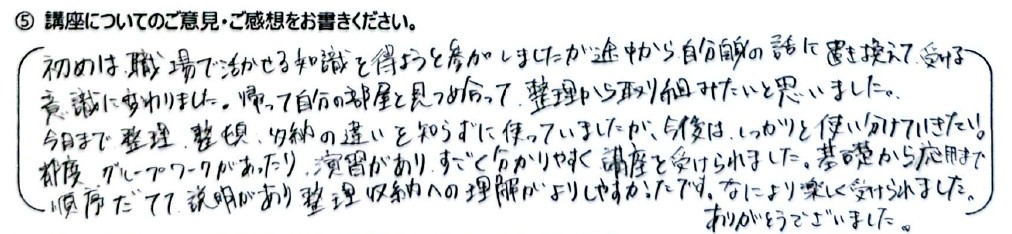 ⑤ 講座についてのご意見・ご感想をお書きください。
初めは、職場で活かせる知識を得ようと参加しましたが途中から自分自身の話に置き換えて、受ける
意識に変わりました。帰って自分の部屋と見つめ合って、整理から取り組みたいと思いました。
今日まで整理、整頓、収納の違いを知らずに使っていましたが、今後は、しっかりと使い分けていきたい。
都度、グループワークがあったり、演習があり、すごく分かりやすく講座を受けられました。基礎から応用まで
順序だてて、説明があり整理収納への理解がよりしやすかったです。なにより楽しく受けられました。
ありがとうございました。